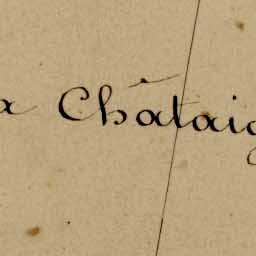 a Châtaig